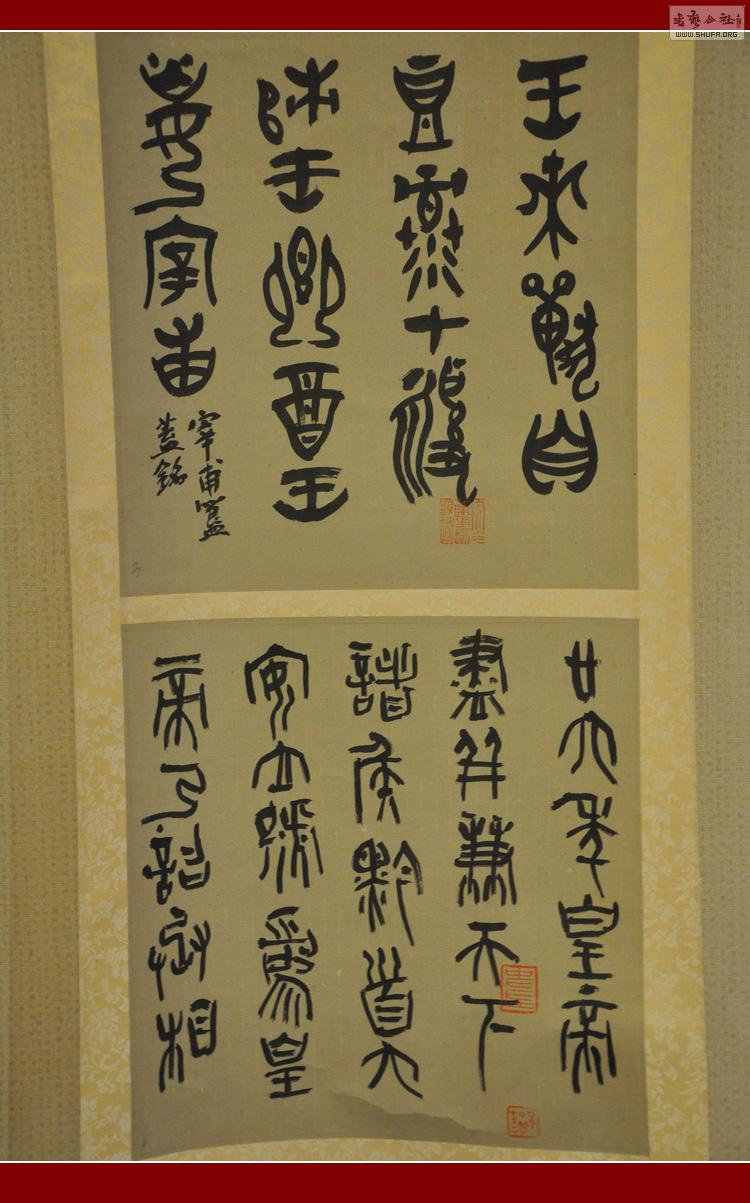 書藝公社
WWW.SHUFA.ORG
王來獸自
豆麓
王鄉酉王
宰甫
宰甫簋
蓋銘
廿六年皇帝
盡并兼天下
諸侯黔首大
安立號為皇
帝乃詔丞相